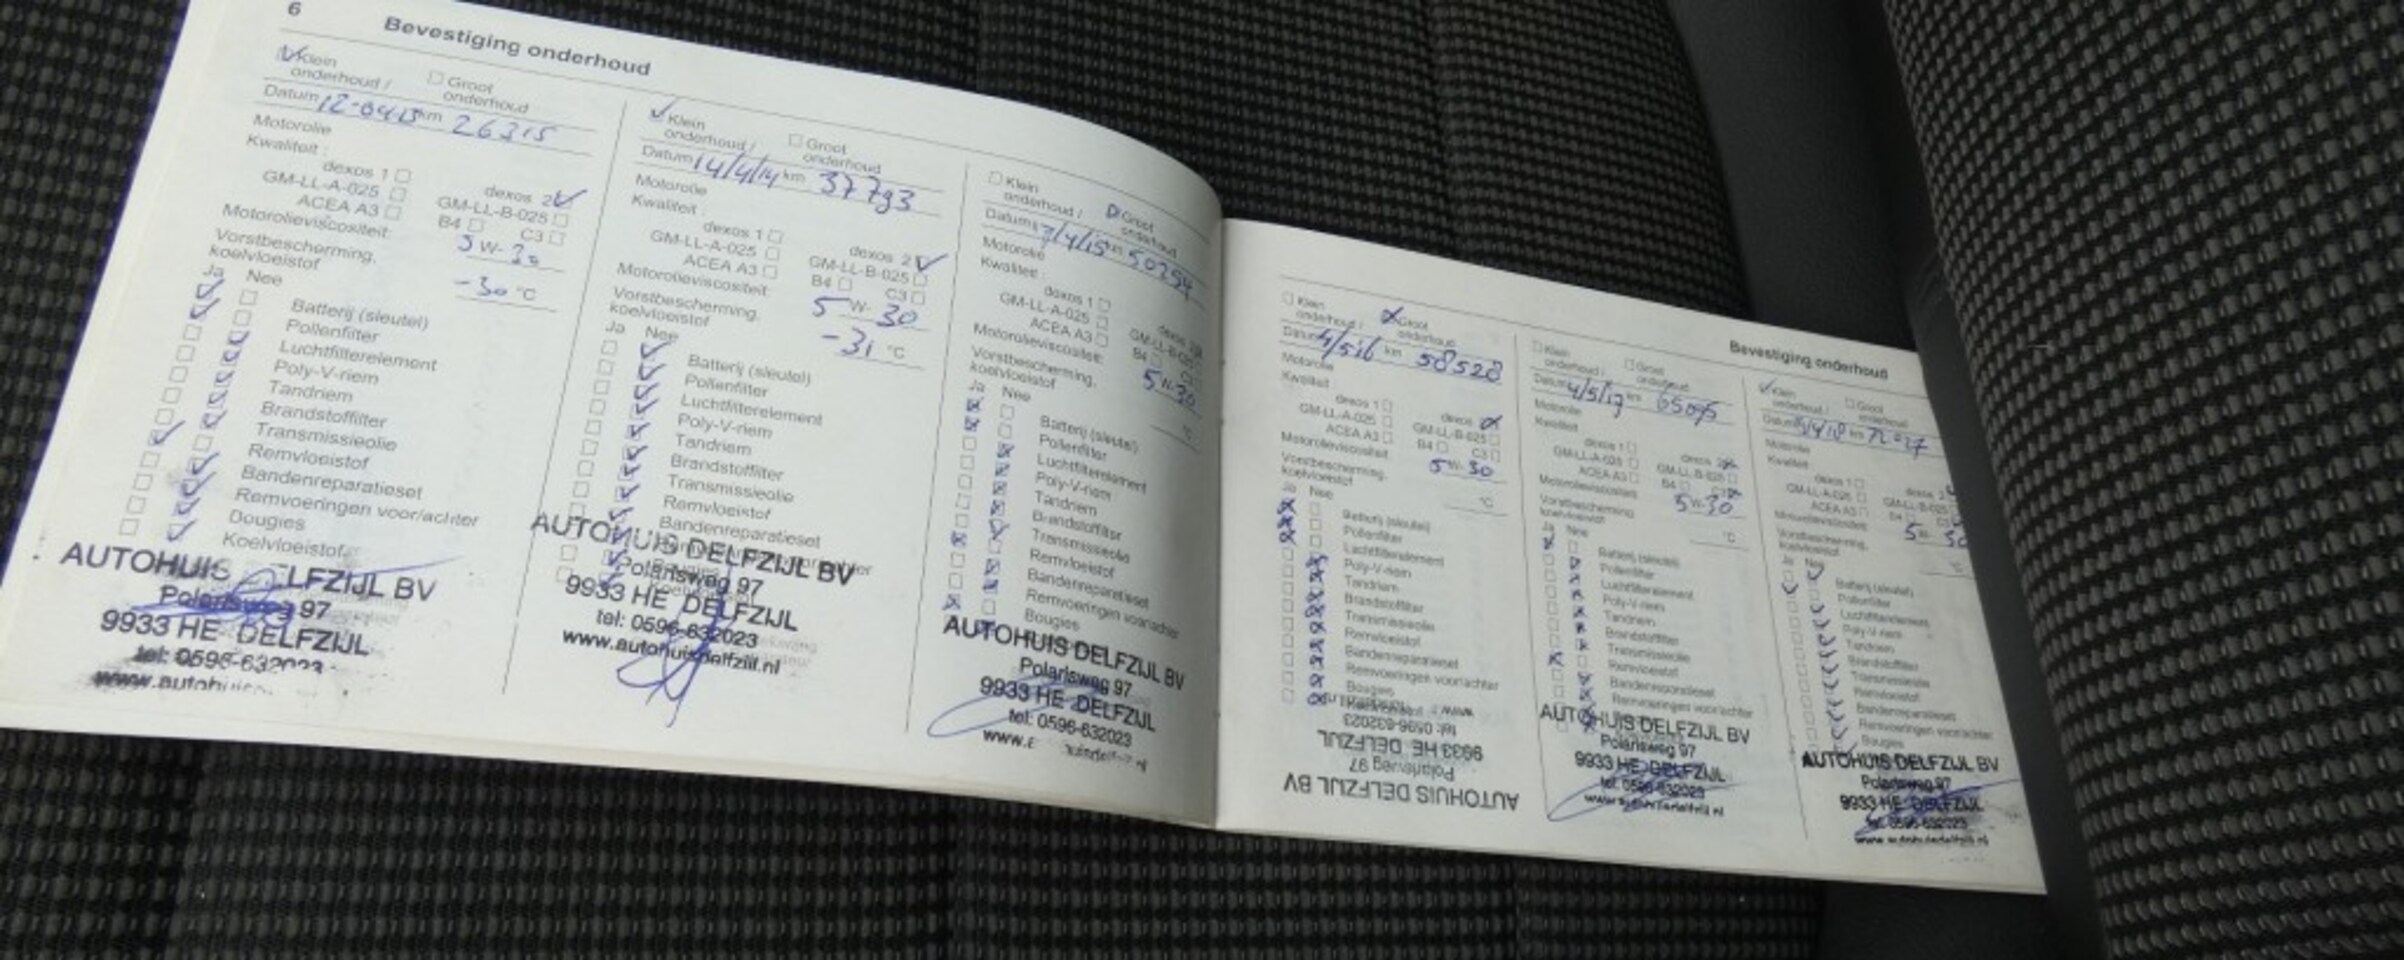 6
Bevestiging onderhoud
Klein onderhoud / Groot onderhoud
Datum 12-04-13 km 26315
Motorolie
Kwaliteit :
dexos 1 dexos 2
GM-LL-A-025 GM-LL-B-025
ACEA A3 B4 C3
Motorolieviscositeit: 5 W- 30
Vorstbescherming,
koelvloeistof -30 °C
Ja Nee
Batterij (sleutel)
Pollenfilter
Luchtfilterelement
Poly-V-riem
Tandriem
Brandstoffilter
Transmissieolie
Remvloeistof
Bandenreparatieset
Remvoeringen voor/achter
Bougies
Koelvloeistof
AUTOHUIS LFZIJL BV
Polarisweg 97
9933 HE DELFZIJL
tel: 0596-632023
www.autohuis
Klein onderhoud / Groot onderhoud
Datum 14/4/14 km 37793
Motorolie
Kwaliteit :
dexos 1 dexos 2
GM-LL-A-025 GM-LL-B-025
ACEA A3 B4 C3
Motorolieviscositeit: 5 W- 30
Vorstbescherming,
koelvloeistof -31 °C
Ja Nee
Batterij (sleutel)
Pollenfilter
Luchtfilterelement
Poly-V-riem
Tandriem
Brandstoffilter
Transmissieolie
Remvloeistof
Bandenreparatieset
AUTOHUIS DELFZIJL BV
Polarisweg 97
9933 HE DELFZIJL
tel: 0596-632023
www.autohuisdelfzijl.nl
Klein onderhoud / Groot onderhoud
Datum 7/4/15 km 50254
Motorolie
Kwaliteit :
dexos 1 dexos 2
GM-LL-A-025 GM-LL-B-025
ACEA A3 B4
Motorolieviscositeit: 5 W- 30
Vorstbescherming,
koelvloeistof °C
Ja Nee
Batterij (sleutel)
Pollenfilter
Luchtfilterelement
Poly-V-riem
Tandriem
Brandstoffilter
Transmissieolie
Remvloeistof
Bandenreparatieset
Remvoeringen voor/achter
Bougies
AUTOHUIS DELFZIJL BV
Polarisweg 97
9933 HE DELFZIJL
tel: 0596-632023
Bevestiging onderhoud
Klein onderhoud / Groot onderhoud
Datum 4/5/16 km 58528
Motorolie
Kwaliteit
dexos 1 dexos
GM-LL-A-025 GM-LL-B-025
ACEA A3 B4 C3
Motorolieviscositeit: 5 W- 30
Vorstbescherming,
koelvloeistof °C
Ja Nee
Batterij (sleutel)
Pollenfilter
Luchtfilterelement
Poly-V-riem
Tandriem
Brandstoffilter
Transmissieolie
Remvloeistof
Bandenreparatieset
Remvoeringen voor/achter
Bougies
AUTOHUIS DELFZIJL BV
Polarisweg 97
9933 HE DELFZIJL
tel: 0596-632023
Klein onderhoud / Groot onderhoud
Datum 4/5/17 km
Motorolie
Kwaliteit
dexos 1 dexos
GM-LL-A-025 GM-LL-B-025
ACEA A3 B4
Motorolieviscositeit: 5 W- 30
Vorstbescherming,
koelvloeistof °C
Ja Nee
Batterij (sleutel)
Pollenfilter
Luchtfilterelement
Poly-V-riem
Tandriem
Brandstoffilter
Transmissieolie
Remvloeistof
Bandenreparatieset
Remvoeringen voor/achter
AUTOHUIS DELFZIJL BV
Polarisweg 97
9933 HE DELFZIJL
tel: 0596-632023
Klein onderhoud / Groot onderhoud
Datum km
Motorolie
Kwaliteit
dexos 1 dexos
GM-LL-A-025
ACEA A3 B4
Motorolieviscositeit: 5 W- 30
Vorstbescherming,
koelvloeistof
Ja Nee
Batterij (sleutel)
Pollenfilter
Luchtfilterelement
Poly-V-riem
Tandriem
Brandstoffilter
Transmissieolie
Remvloeistof
Bandenreparatieset
Remvoeringen voor/achter
Bougies
AUTOHUIS DELFZIJL BV
Polarisweg 97
9933 HE DELFZIJL
tel: 0596-632023
www.autohuisdelfzijl.nl